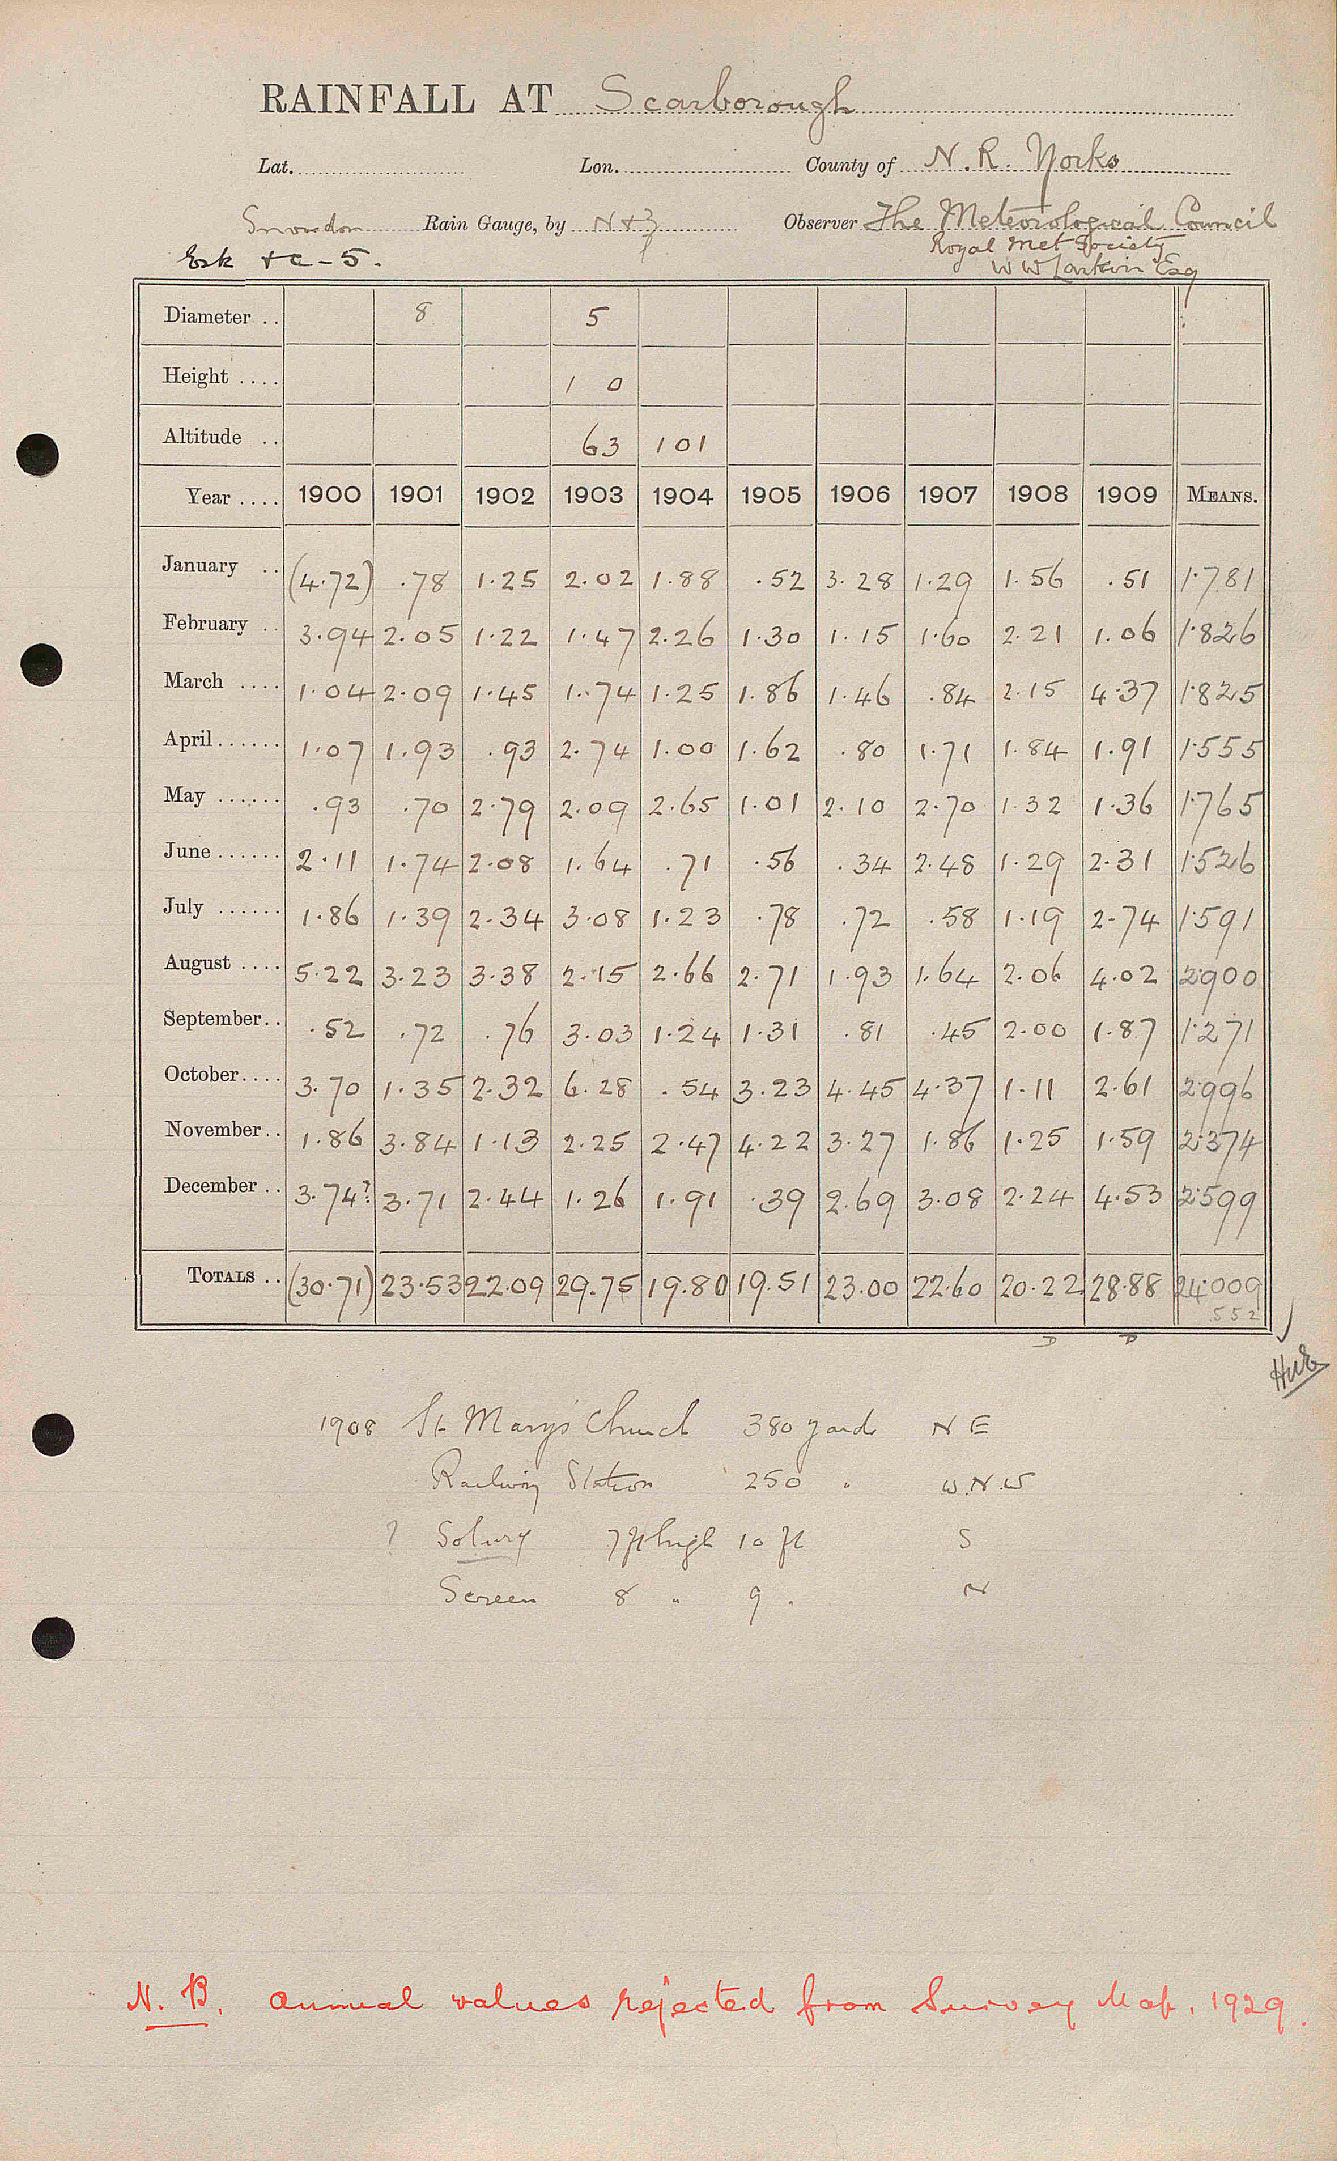 RAINFALL AT Scarborough
Lat. Lon. County of N. R. Yorks
Snowdon Rain Gauge, by N & Z Observer The Meteorological Council
Royal Met Society
W W Larkin Esq
Esk & C - 5.
Diameter .. 8 5
Height .... 1 0
Altitude .. 63 101
Year .... 1900 1901 1902 1903 1904 1905 1906 1907 1908 1909 MEANS.
January .. (4.72) .78 1.25 2.02 1.88 .52 3.28 1.29 1.56 .51 1.781
February .. 3.94 2.05 1.22 1.47 2.26 1.30 1.15 1.60 2.21 1.06 1.826
March .... 1.04 2.09 1.45 1.74 1.25 1.86 1.46 .84 2.15 4.37 1.825
April...... 1.07 1.93 .93 2.74 1.00 1.62 .80 1.71 1.84 1.91 1.555
May ...... .93 .70 2.79 2.09 2.65 1.01 2.10 2.70 1.32 1.36 1.765
June...... 2.11 1.74 2.08 1.64 .71 .56 .34 2.48 1.29 2.31 1.526
July ...... 1.86 1.39 2.34 3.08 1.23 .78 .72 .58 1.19 2.74 1.591
August .... 5.22 3.23 3.38 2.15 2.66 2.71 1.93 1.64 2.06 4.02 2.900
September.. .52 .72 .76 3.03 1.24 1.31 .81 .45 2.00 1.87 1.271
October.... 3.70 1.35 2.32 6.28 .54 3.23 4.45 4.37 1.11 2.61 2.996
November.. 1.86 3.84 1.13 2.25 2.47 4.22 3.27 1.86 1.25 1.59 2.374
December .. 3.74? 3.71 2.44 1.26 1.91 .39 2.69 3.08 2.24 4.53 2.599
TOTALS .. (30.71) 23.53 22.09 29.75 19.80 19.51 23.00 22.60 20.22 28.88 24.009
.552
D D
1908 St. Mary's Church 380 yards N E
Railway Station 250 " W.N.W
? 7 ft high 10 ft S
Screen 8 " 9 . N
N. B. Annual values rejected from Survey Map, 1929.